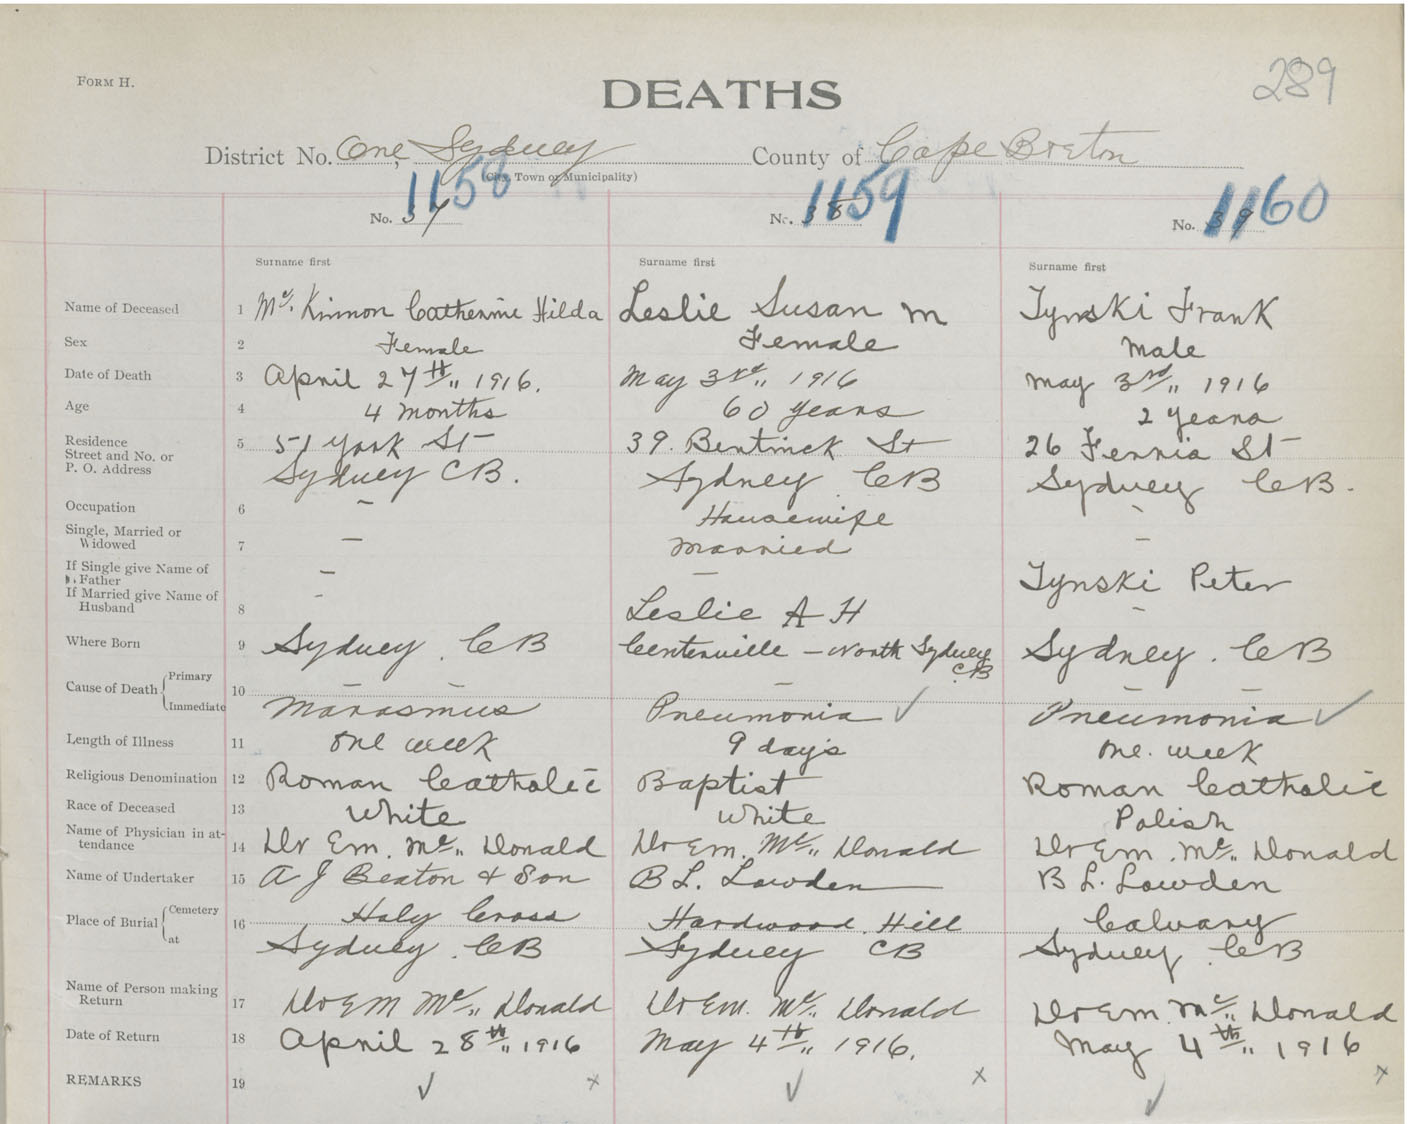 FORM H.
DEATHS
289
District No. One, Sydney County of Cape Breton
(City, Town or Municipality)
1158 1159 1160
No. 37 No. 38 No. 39
Surname first Surname first Surname first
Name of Deceased 1 Mc. Kinnon Catherine Hilda Leslie Susan M Tynski Frank
Sex 2 Female Female Male
Date of Death 3 April 27th,, 1916. May 3rd,, 1916 May 3rd,, 1916
Age 4 4 months 60 years 2 years
Residence 5 51 York St 39. Bentinck St 26 Ferris St
Street and No. or
P. O. Address Sydney CB. Sydney CB Sydney CB.
Occupation 6 — Housewife -
Single, Married or
Widowed 7 — Married —
If Single give Name of
Father — — Tynski Peter
If Married give Name of
Husband 8 - Leslie A H -
Where Born 9 Sydney. CB Centerville - North Sydney CB Sydney. CB
Cause of Death Primary 10 — — — — —
Immediate Marasmus Pneumonia ✓ Pneumonia ✓
Length of Illness 11 one week 9 days one. week
Religious Denomination 12 Roman Catholic Baptist Roman Catholic
Race of Deceased 13 White White Polish
Name of Physician in at-
tendance 14 Dr Em. Mc,, Donald Dr Em. Mc,, Donald Dr Em. Mc,, Donald
Name of Undertaker 15 A J Beaton & Son B L. Lowden B L. Lowden
Place of Burial Cemetery 16 Holy Cross Hardwood Hill Calvary
at Sydney. CB Sydney CB Sydney. CB
Name of Person making
Return 17 Dr EM Mc,, Donald Dr Em. Mc,, Donald Dr Em. Mc,, Donald
Date of Return 18 April 28th,, 1916 May 4th,, 1916. May 4th,, 1916
REMARKS 19 ✓ x ✓ x ✓ x